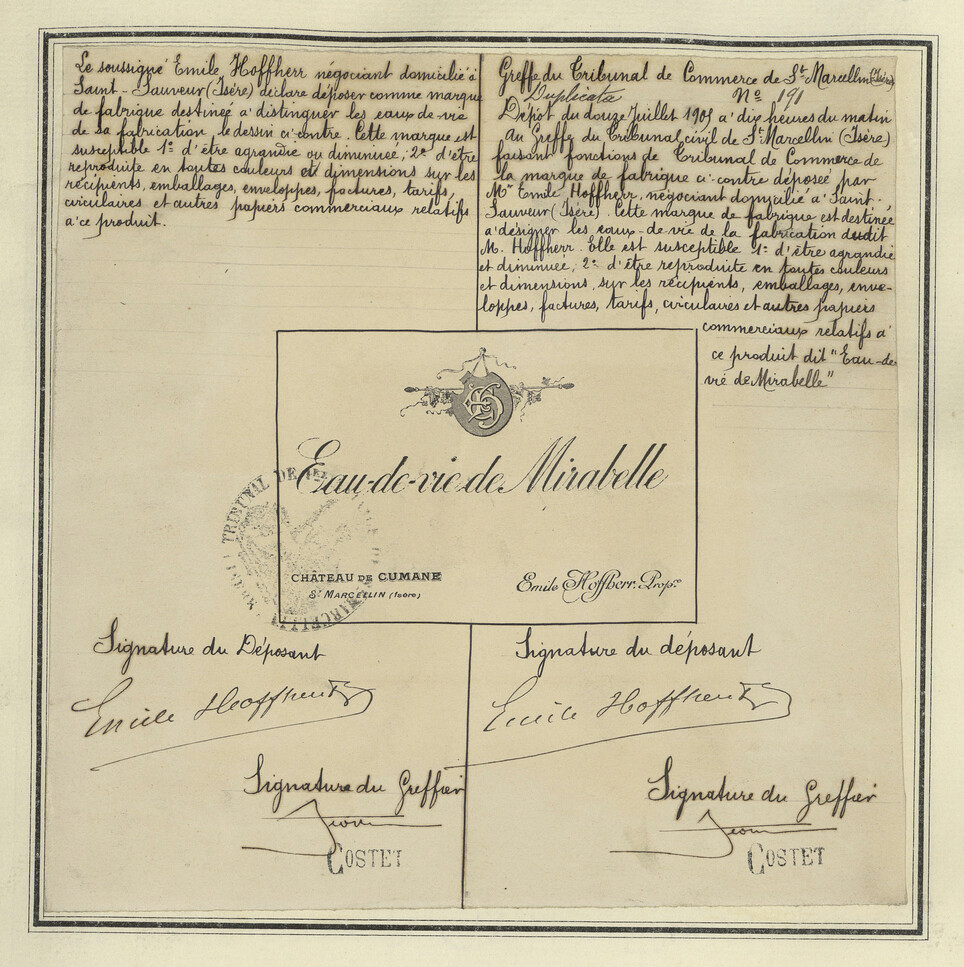 Le soussigné Emile Hoffherr négociant domicilié à
Saint-Sauveur (Isère) déclare déposer comme marque
de fabrique destinée à distinguer les eaux-de-vie
de sa fabrication, le dessin ci-contre. Cette marque est
susceptible 1° d'être agrandie ou diminuée, 2° d'être
reproduite en toutes couleurs et dimensions sur les
récipients, emballages, enveloppes, factures, tarifs,
circulaires et autres papiers commerciaux relatifs
à ce produit.
Greffe du Tribunal de Commerce de St Marcellin (Isère)
Duplicata No 191
Dépôt du douze Juillet 1905 à dix heures du matin
Au Greffe du Tribunal civil de St Marcellin (Isère)
faisant fonctions de Tribunal de Commerce de
la marque de fabrique ci-contre déposée par
Mr Emile Hoffherr, négociant domicilié à Saint-
Sauveur (Isère). Cette marque de fabrique est destinée
à désigner les eaux-de-vie de la fabrication dudit
M. Hoffherr. Elle est susceptible 1° d'être agrandie
et diminuée, 2° d'être reproduite en toutes couleurs
et dimensions, sur les récipients, emballages, enve-
loppes, factures, tarifs, circulaires et autres papiers
commerciaux relatifs à
ce produit dit "Eau-de-
vie de Mirabelle"
Eau-de-vie de Mirabelle
CHÂTEAU DE CUMANE
St MARCELLIN (Isère)
Emile Hoffherr. Propre
TRIBUNAL DE
MARCELLIN
Signature du Déposant
Emile Hoffherr
Signature du déposant
Emile Hoffherr
Signature du Greffier
COSTET
Signature du Greffier
COSTET